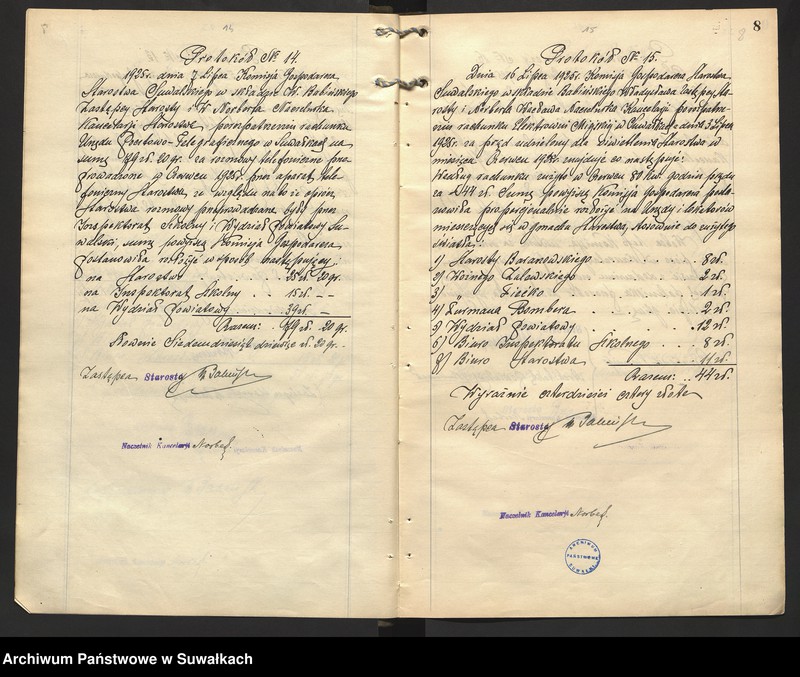 14
Protokół № 14.
1925r. dnia 7 Lipca Komisja Gospodarcza
Starostwa Suwalskiego w składzie W. Babińskiego
Zastępcy Starosty i W. Norberta
Kancelarji Starostwa, po rozpatrzeniu rachunku
Urzędu Pocztowo-Telegraficznego w Suwałkach na
sumę 79 zł. 20 gr. za rozmowy telefoniczne prze
prowadzone w Czerwcu 1925r. przez aparat tele
foniczny Starostwa, ze względu na to że oprócz
Starostwa rozmowy przeprowadzane były przez
Inspektorat Szkolny i Wydział Powiatowy Su
walski, sumę powyższą Komisja Gospodarcza
postanowiła rozłożyć w sposób następujący:
na Starostwo . . . 25 zł. 20 gr.
na Inspektorat Szkolny . . . 15 zł. –
na Wydział Powiatowy . . . 39 zł. –
Razem: 79 zł. 20 gr.
Słownie Siedemdziesiąt dziewięć zł. 20 gr.
Zastępca Starosty
Naczelnik Kancelarji
15
8
Protokół № 15.
Dnia 16 Lipca 1925r. Komisja Gospodarcza Starostwa
Suwalskiego w składzie Babińskiego Władysława Zastępcy Sta-
rosty i Norberta Naczelnika Kancelarji po rozpatrze-
niu rachunku Elektrowni Miejskiej w Suwałkach z dnia 3 Lipca
1925r. za prąd udzielony dla oświetlenia Starostwa w
miesiącu Czerwcu 1925r. znajduje co następuje:
Według rachunku zużyto w Czerwcu 80 kwt. godzin prądu
za zł 44 zł. Sumę powyższą Komisja Gospodarcza posta-
nowiła proporcjonalnie rozłożyć na Urzędy i lokatorów
mieszczących się w gmachu Starostwa, stosownie do zużytego
światła:
1) Starosty Baranowskiego . . . 8 zł.
2) Woźnego Zalewskiego . . . 2 zł.
3) " Zięćko . . . 1 zł.
4) Furmana Bombera . . . 2 zł.
5) Wydział Powiatowy . . . 12 zł.
6) Biuro Inspektoratu Szkolnego . . . 8 zł.
7) Biuro Starostwa . . . 11 zł.
Razem: . . 44 zł.
Wyraźnie czterdzieści cztery złote
Zastępca Starosty
Naczelnik Kancelarji
ARCHIWUM PAŃSTWOWE SUWAŁKI
Archiwum Państwowe w Suwałkach